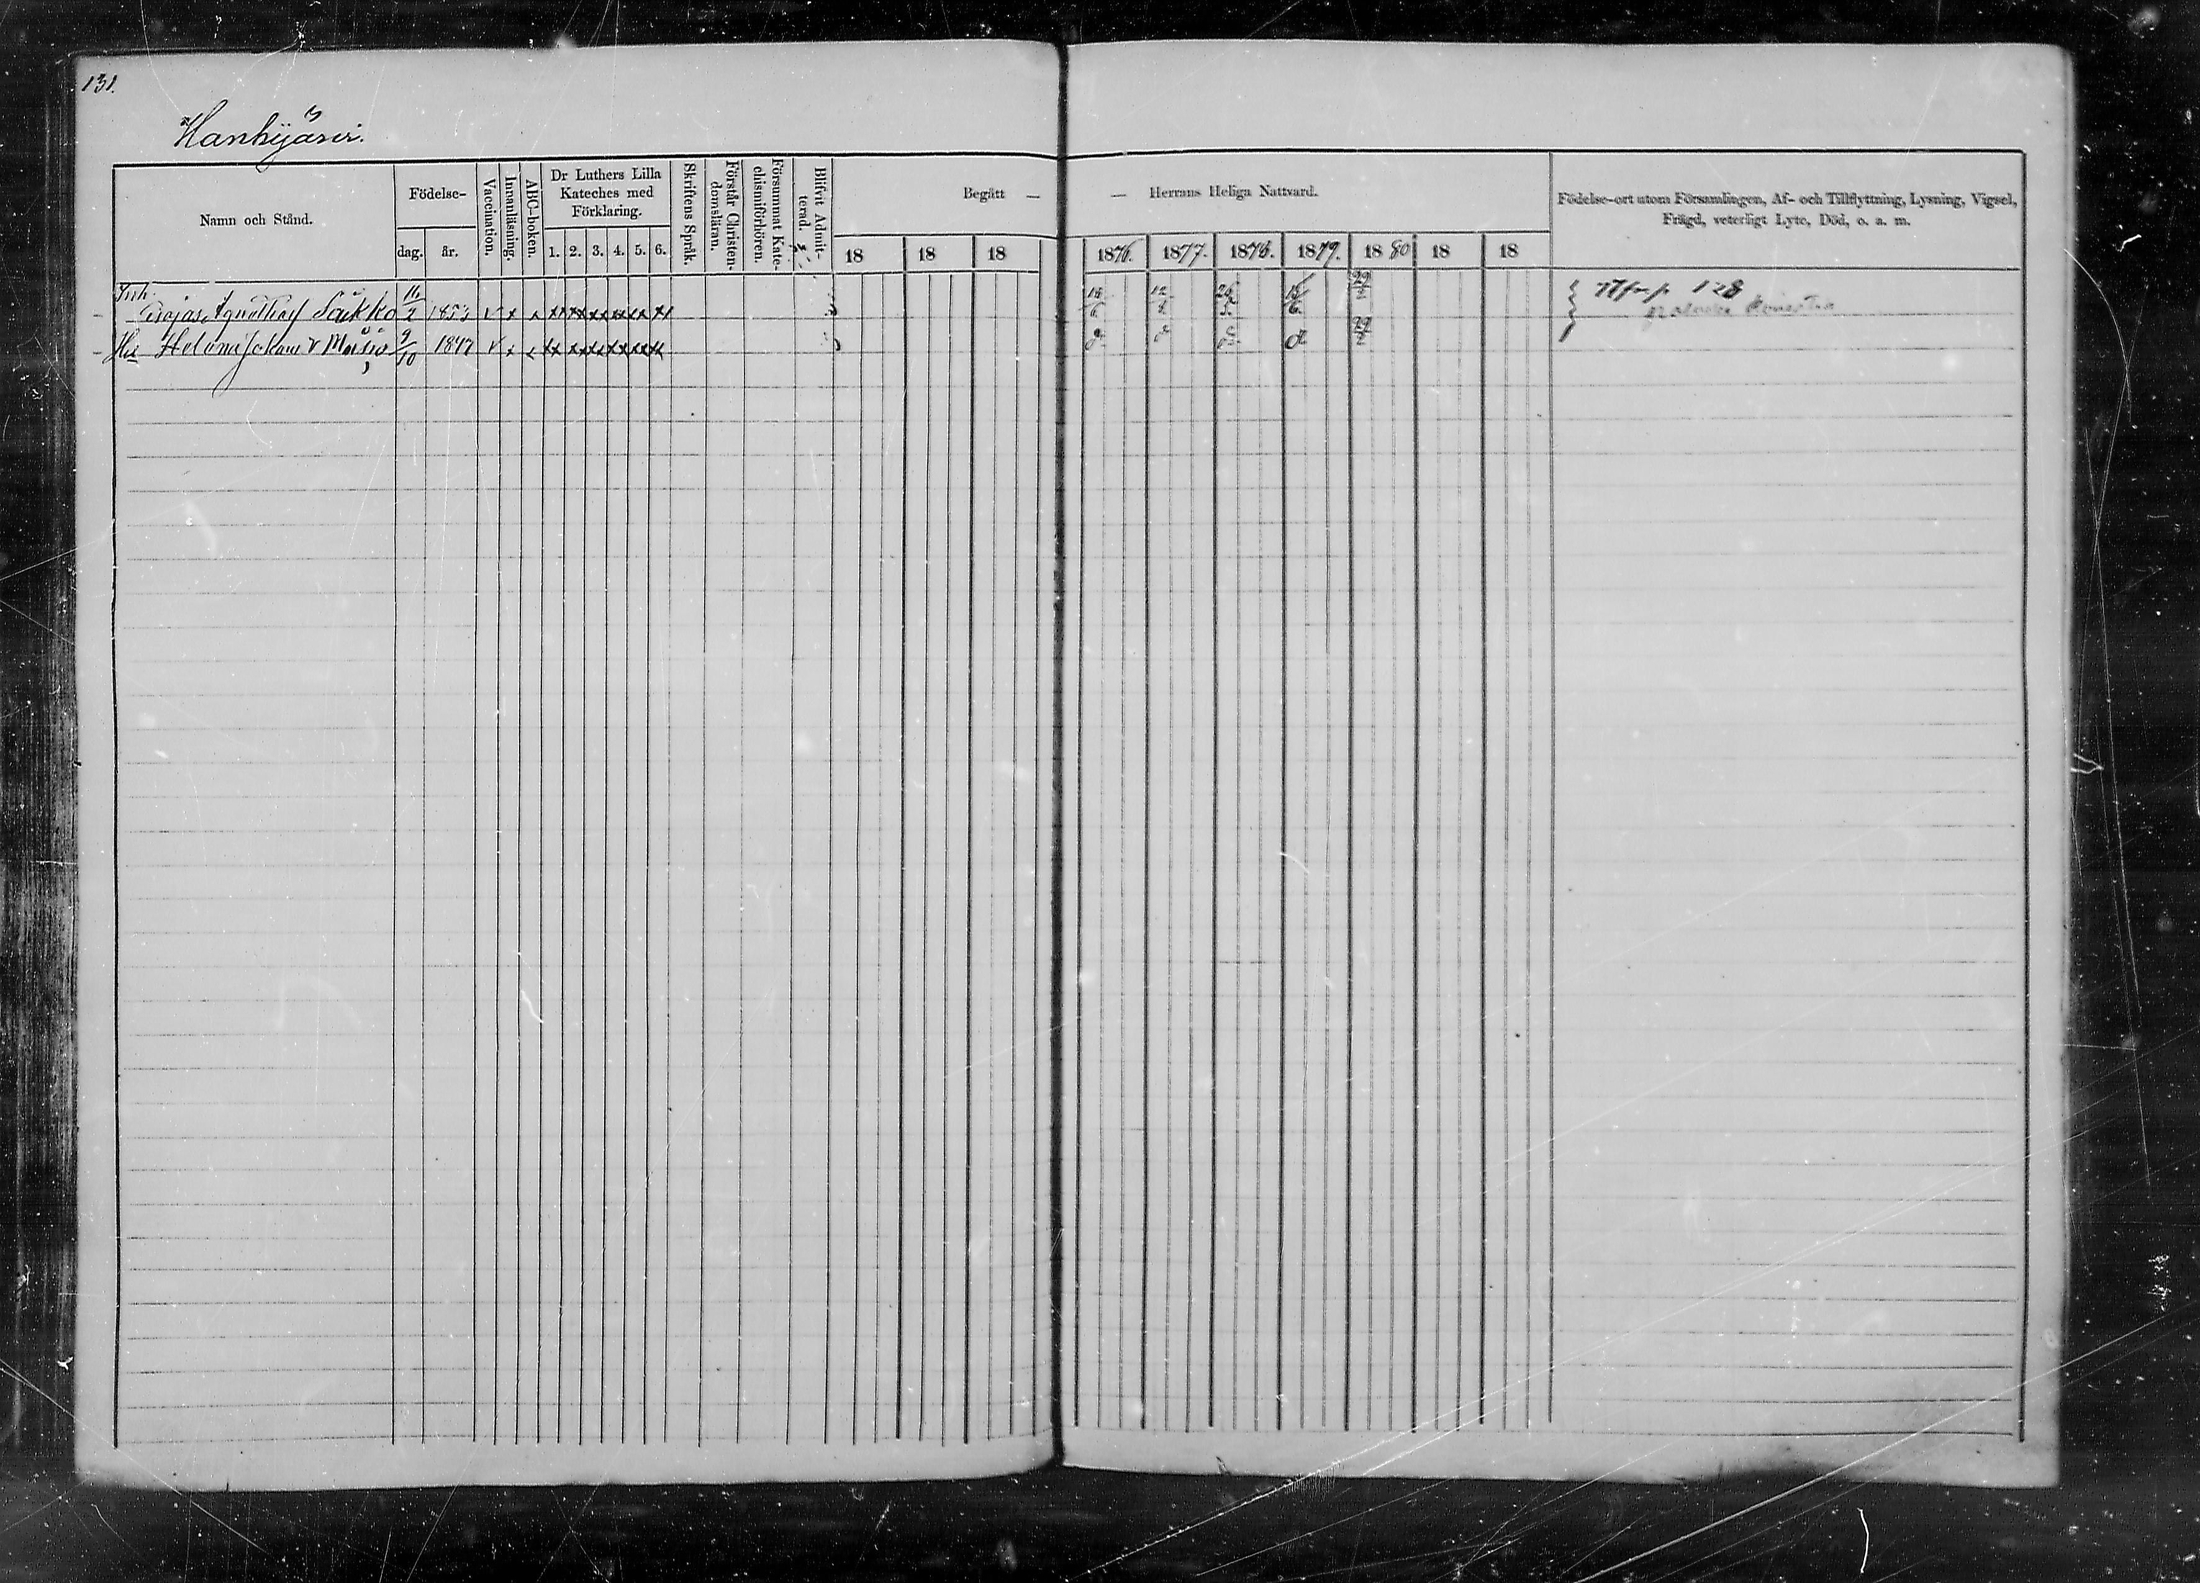 131.
Hankijärvi.
Namn och Stånd.
Födelse-
dag.
år.
Vaccination.
Innanläsning.
ABC-boken.
Dr Luthers Lilla
Kateches med
Förklaring.
1. 2. 3. 4. 5. 6.
Skriftens Språk.
Förstår Christen-
domsläran.
Försummat Kate-
chismiförhören.
Blifvit Admit-
terad.
Begått —
— Herrans Heliga Nattvard.
18 18 18 1876. 1877. 1878. 1879. 1880 18 18
Födelse-ort utom Församlingen, Af- och Tillflyttning, Lysning, Vigsel,
Frägd, veterligt Lyte, Död, o. a. m.
Inh.
Säkko 16/2 1853 v x x xx xx xx xx xx xx 18/6 12/8 26/5 15/6 29/2 128
Hu Helena Johan 9/10 1847 v x x xx xx xx xx xx xx d d d d 29/2